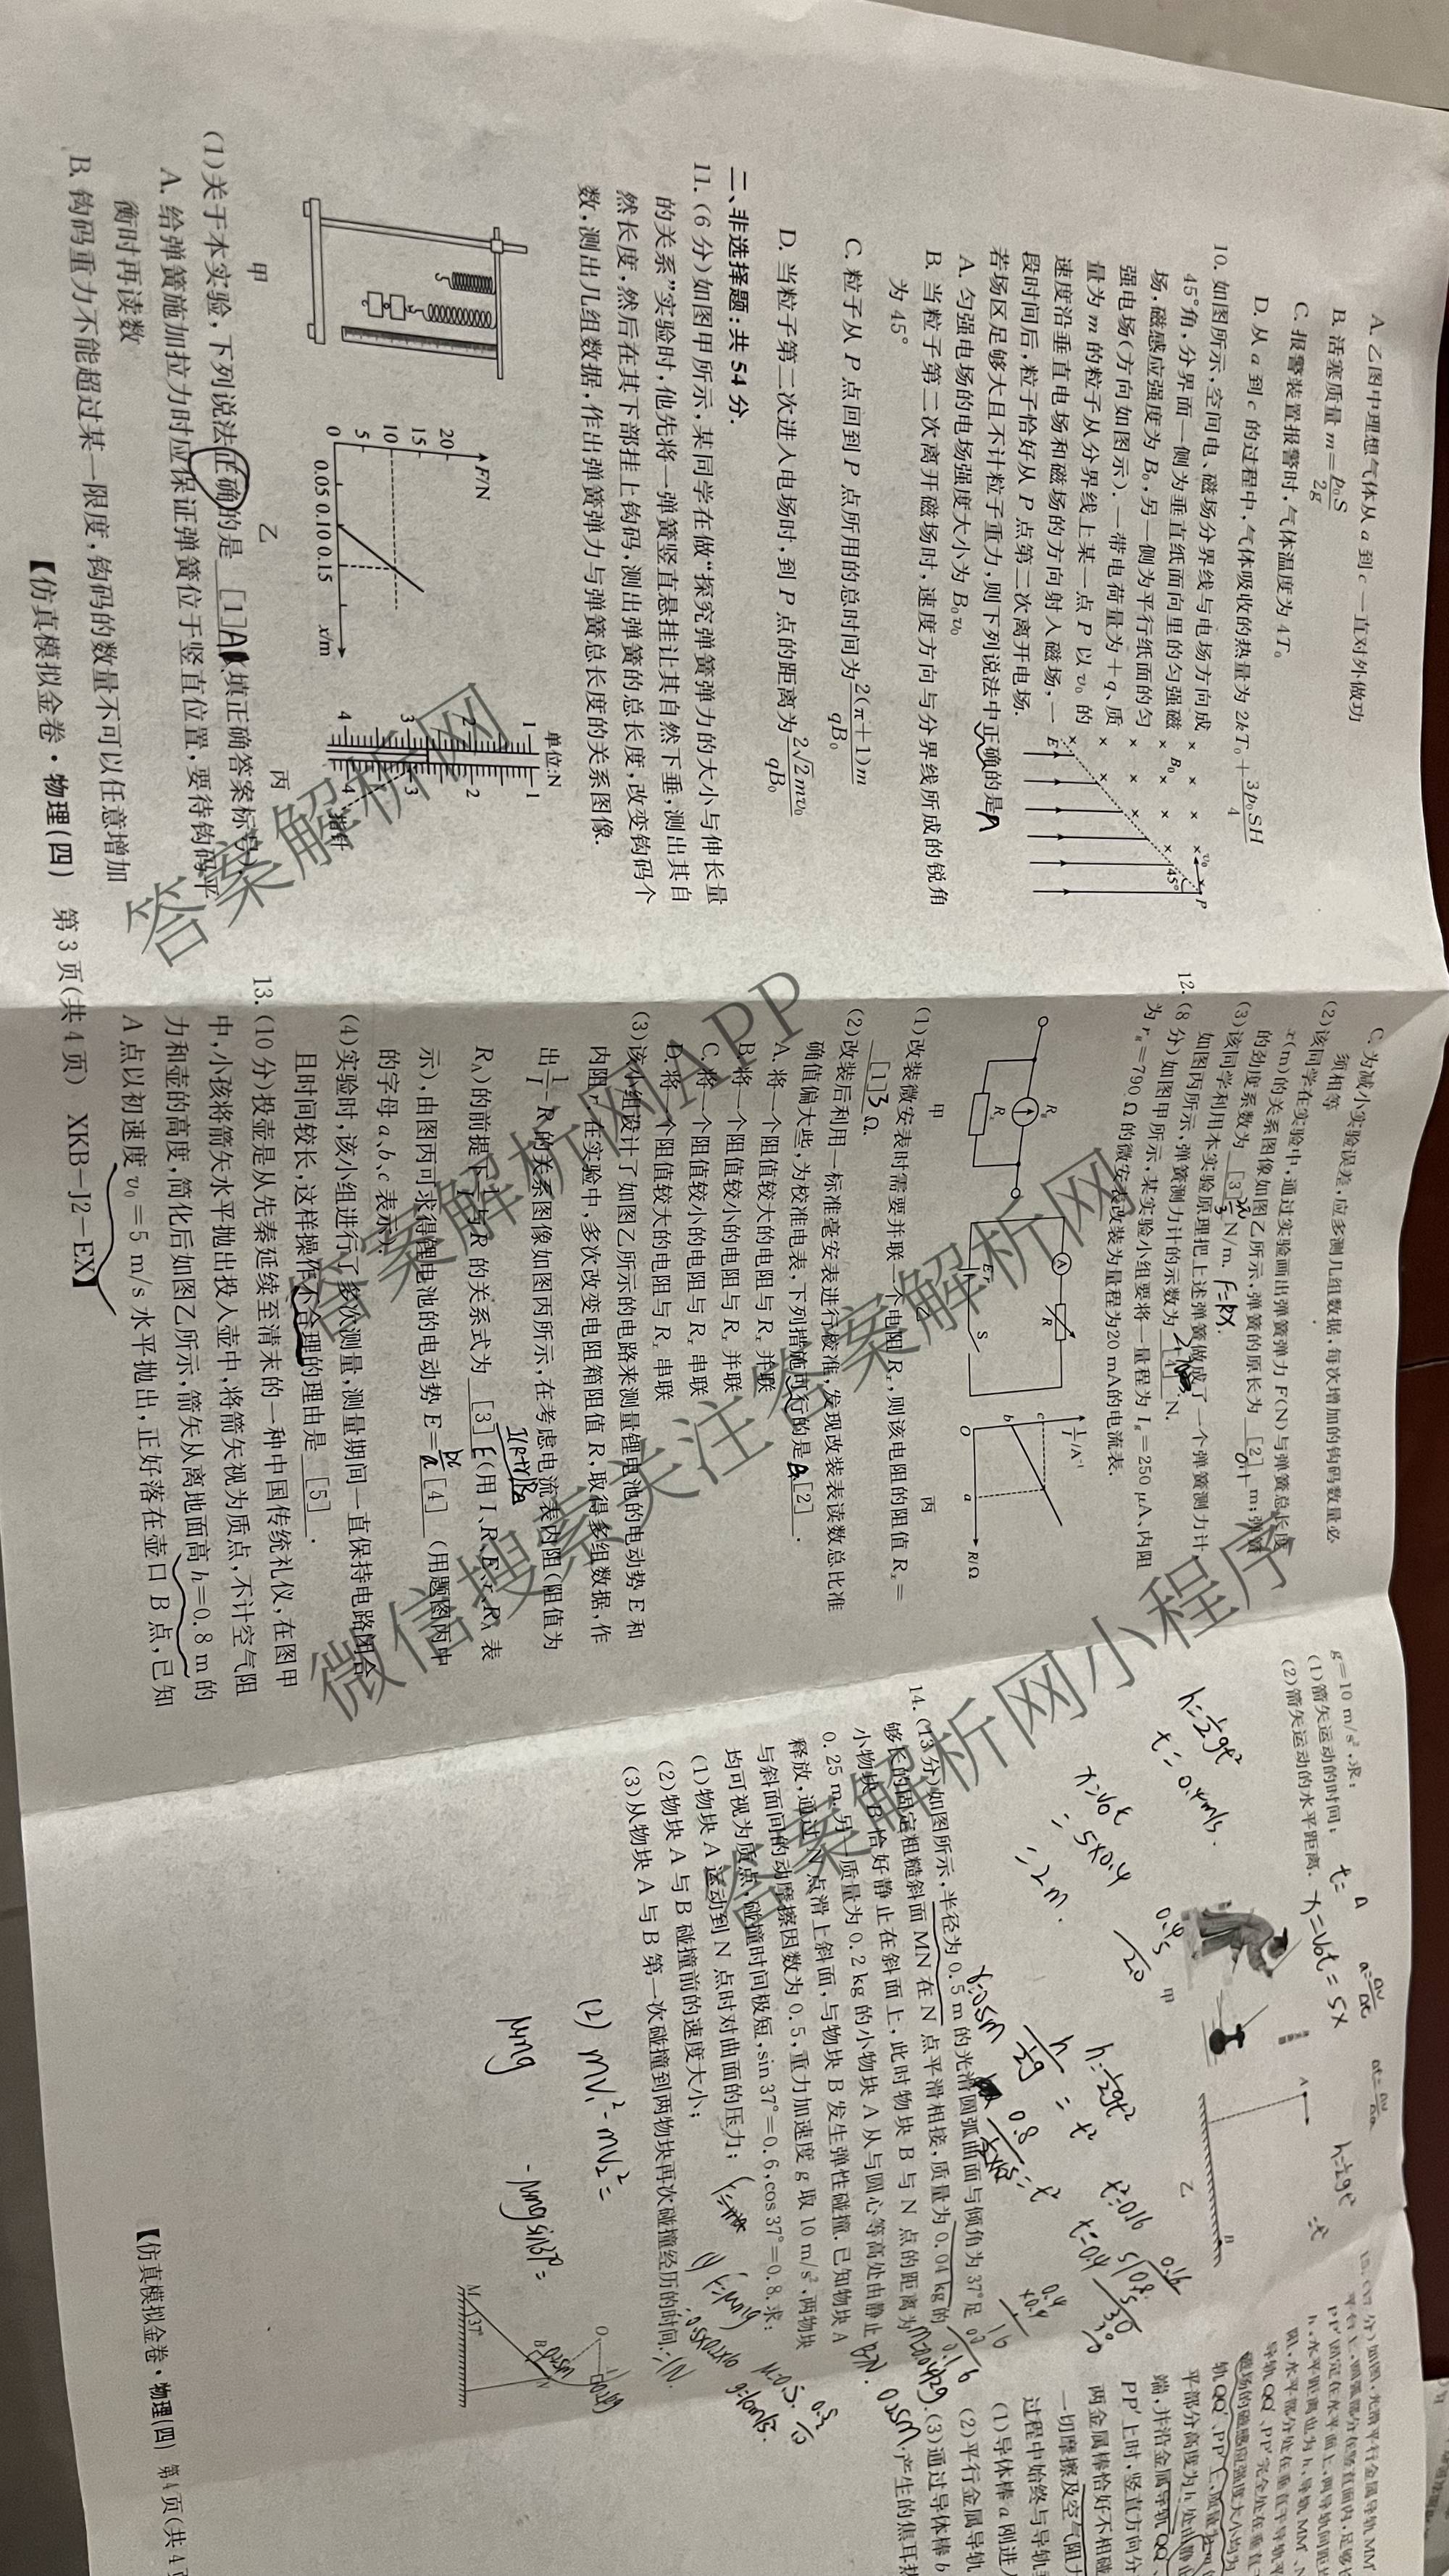 A. 乙图中理想气体从 a 到 c 一直对外做功
B. 活塞质量 m=p₀S/2g
C. 报警装置报警时,气体温度为 4T₀
D. 从 a 到 c 的过程中,气体吸收的热量为 2kT₀+3p₀SH/4
10. 如图所示,空间电、磁场分界线与电场方向成
45°角,分界面一侧为垂直纸面向里的匀强磁
场,磁感应强度为 B₀,另一侧为平行纸面的匀
强电场(方向如图示).一带电荷量为+q、质
量为 m 的粒子从分界线上某一点 P 以 v₀ 的
速度沿垂直电场和磁场的方向射入磁场,一
段时间后,粒子恰好从 P 点第二次离开电场.
若场区足够大且不计粒子重力,则下列说法中正确的是A
B₀
v₀
45°
P
E
A. 匀强电场的电场强度大小为 B₀v₀
B. 当粒子第二次离开磁场时,速度方向与分界线所成的锐角
为 45°
C. 粒子从 P 点回到 P 点所用的总时间为2(π+1)m/qB₀
D. 当粒子第二次进入电场时,到 P 点的距离为2√2mv₀/qB₀
二、非选择题:共 54 分.
11. (6 分)如图甲所示,某同学在做“探究弹簧弹力的大小与伸长量
的关系”实验时,他先将一弹簧竖直悬挂让其自然下垂,测出其自
然长度,然后在其下部挂上钩码,测出弹簧的总长度,改变钩码个
数,测出几组数据,作出弹簧弹力与弹簧总长度的关系图像.
F/N
20
15
10
5
0
0.05 0.10 0.15
x/m
单位:N
1
2
3
4
1
2
3
4
指针
甲
乙
丙
(1)关于本实验,下列说法正确的是 [1]A (填正确答案标号).
A. 给弹簧施加拉力时应保证弹簧位于竖直位置,要待钩码平
衡时再读数
B. 钩码重力不能超过某一限度,钩码的数量不可以任意增加
【仿真模拟金卷·物理(四) 第 3 页(共 4 页) XKB-J2-EX】
C. 为减小实验误差,应多测几组数据,每次增加的钩码数量必
须相等
(2)该同学在实验中,通过实验画出弹簧弹力 F(N)与弹簧总长度
x(m)的关系图像如图乙所示,弹簧的原长为 [2] m;弹簧
的劲度系数为 [3] N/m. F=kx.
(3)该同学利用本实验原理把上述弹簧做成了一个弹簧测力计,
如图丙所示,弹簧测力计的示数为 [4] N.
12. (8 分)如图甲所示,某实验小组要将一量程为 I_g=250 μA,内阻
为 r_g=790 Ω 的微安表改装为量程为20 mA的电流表.
R_g
R_x
A
R
E r
S
1/I/A⁻¹
c
b
O
a
R/Ω
甲
乙
丙
(1)改装微安表时需要并联一个电阻 R_x,则该电阻的阻值 R_x=
[1] Ω.
(2)改装后利用一标准毫安表进行校准,发现改装表读数总比准
确值偏大些,为校准电表,下列措施可行的是 [2] .
A. 将一个阻值较大的电阻与 R_x 并联
B. 将一个阻值较小的电阻与 R_x 并联
C. 将一个阻值较小的电阻与 R_x 串联
D. 将一个阻值较大的电阻与 R_x 串联
(3)该小组设计了如图乙所示的电路来测量锂电池的电动势 E 和
内阻 r.在实验中,多次改变电阻箱阻值 R,取得多组数据,作
出1/I-R 的关系图像如图丙所示,在考虑电流表内阻(阻值为
R_A)的前提下,1/I与 R 的关系式为 [3] (用 I、R、E、r、R_A 表
示),由图丙可求得锂电池的电动势 E= [4] (用题图丙中
的字母 a、b、c 表示).
(4)实验时,该小组进行了多次测量,测量期间一直保持电路闭合
且时间较长,这样操作不合理的理由是 [5] .
13. (10 分)投壶是从先秦延续至清末的一种中国传统礼仪,在图甲
中,小孩将箭矢水平抛出投入壶中,将箭矢视为质点,不计空气阻
力和壶的高度,简化后如图乙所示,箭矢从离地面高 h=0.8 m 的
A 点以初速度 v₀=5 m/s 水平抛出,正好落在壶口 B 点,已知
g=10 m/s²,求:
(1)箭矢运动的时间;
(2)箭矢运动的水平距离.
x=v₀t=5x
h=½gt²
t=0.4m/s.
x=v₀t
=5×0.4
=2m.
甲
乙
A
B
h=½gt²
t²=0.16
t=0.4
14. (13 分)如图所示,半径为 0.5 m 的光滑圆弧曲面与倾角为 37°足
够长的固定粗糙斜面 MN 在 N 点平滑相接,质量为 0.04 kg 的
小物块 B 恰好静止在斜面上,此时物块 B 与 N 点的距离为
0.25 m.另一质量为 0.2 kg 的小物块 A 从与圆心等高处由静止
释放,通过 N 点滑上斜面,与物块 B 发生弹性碰撞.已知物块 A
与斜面间的动摩擦因数为 0.5,重力加速度 g 取 10 m/s²,两物块
均可视为质点,碰撞时间极短,sin 37°=0.6,cos 37°=0.8.求:
(1)物块 A 运动到 N 点时对曲面的压力;
(2)物块 A 与 B 碰撞前的速度大小;
(3)从物块 A 与 B 第一次碰撞到两物块再次碰撞经历的时间.
(2) mv₁²-mv₂²=
μmg
-μmgsin37°=
M
37°
B
N
O
【仿真模拟金卷·物理(四) 第 4 页(共 4 页
平部分高度为 h 处由静止
端,并沿金属导轨 QQ'、
PP'上时,竖直方向分
两金属棒恰好不相碰
一切摩擦及空气阻力
过程中始终与导轨
(1)导体棒 a 刚进
(2)平行金属导轨
(3)通过导体棒 b
产生的焦耳热
微信搜索关注答案解析网小程序
答案解析网APP
答案解析网